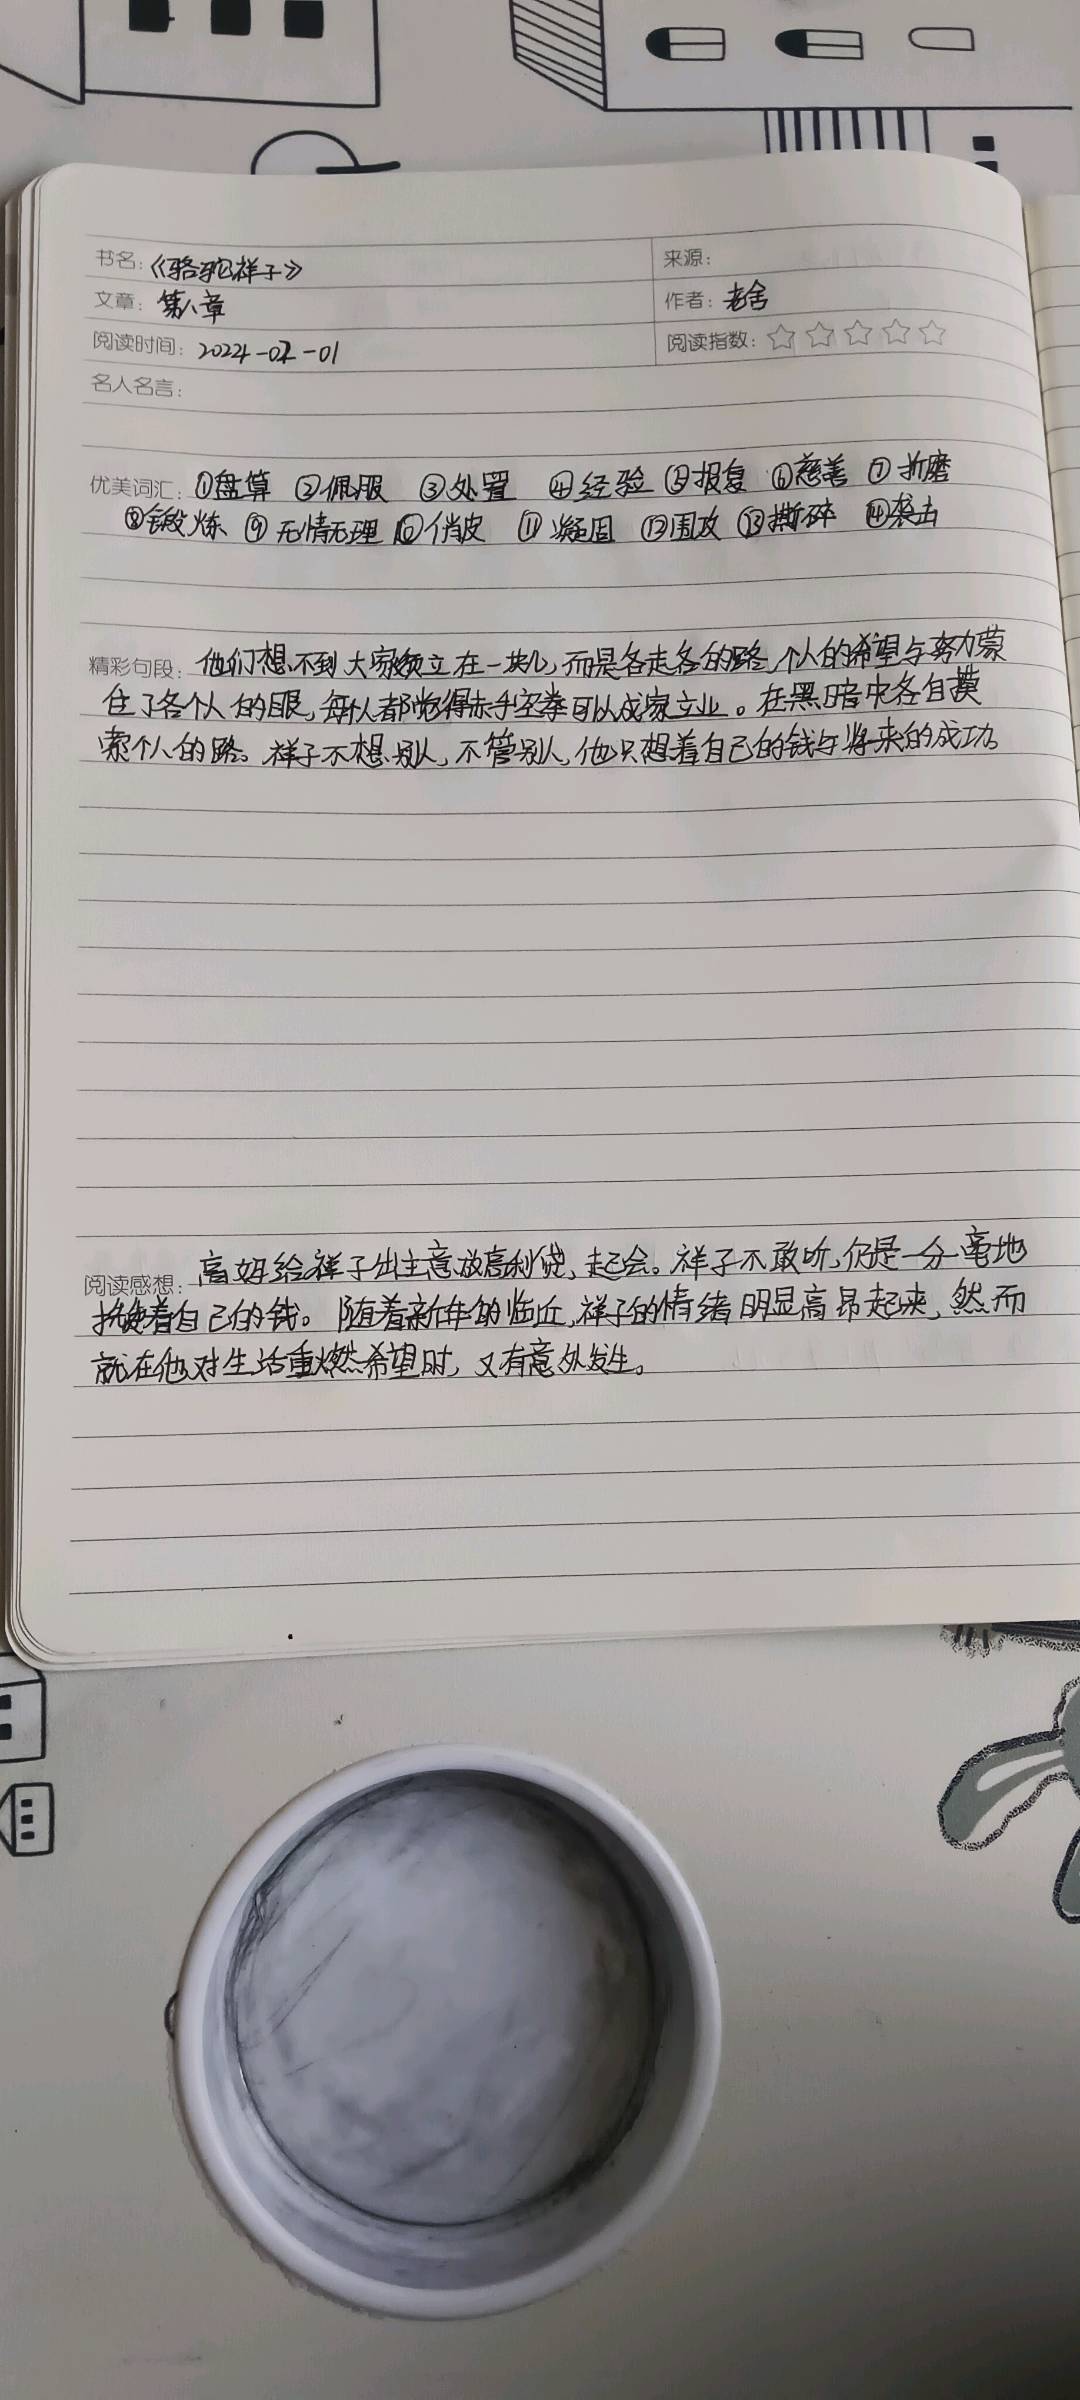 书名:《骆驼祥子》 来源:
文章: 第八章 作者: 老舍
阅读时间: 2024-02-01 阅读指数:
名人名言:
优美词汇: ①盘算 ②佩服 ③处置 ④经验 ⑤报复 ⑥慈善 ⑦折磨
⑧锻炼 ⑨无情无理 ⑩俏皮 ⑪凝固 ⑫围攻 ⑬撕碎 ⑭袭击
精彩句段: 他们想不到大家须立在一块儿,而是各走各的路,个人的希望与努力蒙
住了各个人的眼,每个人都觉得赤手空拳可以成家立业。在黑暗中各自摸
索个人的路。祥子不想别人,不管别人,他只想着自己的钱与将来的成功。
阅读感想: 高妈给祥子出主意放高利贷、起会。祥子不敢听,仍是一分一毫地
攒着自己的钱。随着新年的临近,祥子的情绪明显高昂起来,然而
就在他对生活重燃希望时,又有意外发生。